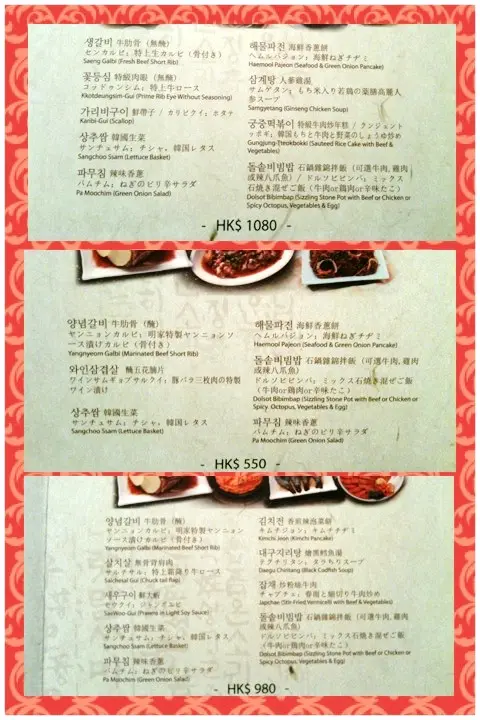 생갈비 牛肋骨 (無醃)
センカルビ：特上生カルビ（骨付き）
Saeng Galbi (Fresh Beef Short Rib)
꽃등심 特級肉眼 (無醃)
コッドゥンシム：特上牛ロース
Kkotdeungsim-Gui (Prime Rib Eye Without Seasoning)
가리비구이 鮮帶子 / カリビクイ：ホタテ
Karibi-Gui (Scallop)
상추쌈 韓國生菜
サンチュサム：チシャ，韓国レタス
Sangchoo Ssam (Lettuce Basket)
파무침 辣味香蔥
パムチム：ねぎのピリ辛サラダ
Pa Moochim (Green Onion Salad)
해물파전 海鮮香蔥餅
ヘムルパジョン：海鮮ねぎチヂミ
Haemool Pajeon (Seafood & Green Onion Pancake)
삼계탕 人蔘雞湯
サムゲタン：もち米入り若鶏の薬膳高麗人
参スープ
Samgyetang (Ginseng Chicken Soup)
궁중떡볶이 特級牛肉炒年糕 / クンジュント
ッポギ：韓国もちと牛肉と野菜のしょうゆ炒め
Gungjung-Tteokbokki (Sauteed Rice Cake with Beef &
Vegetables)
돌솥비빔밥 石鍋雜錦拌飯 (可選牛肉,雞肉
或辣八爪魚) / ドルソピビンパ：ミックス
石焼き混ぜご飯（牛肉or鶏肉or辛味たこ）
Dolsot Bibimbap (Sizzling Stone Pot with Beef or Chicken or
Spicy Octopus, Vegetables & Egg)
- HK$ 1080 -
양념갈비 牛肋骨 (醃)
ヤンニョンカルビ：明家特製ヤンニョンソ
ース漬けカルビ（骨付き）
Yangnyeom Galbi (Marinated Beef Short Rib)
와인삼겹살 醃五花腩片
ワインサムギョプサルクイ：豚バラ三枚肉の特製
ワイン漬け
상추쌈 韓國生菜
サンチュサム：チシャ，韓国レタス
Sangchoo Ssam (Lettuce Basket)
해물파전 海鮮香蔥餅
ヘムルパジョン：海鮮ねぎチヂミ
Haemool Pajeon (Seafood & Green Onion Pancake)
돌솥비빔밥 石鍋雜錦拌飯 (可選牛肉,雞肉
或辣八爪魚)
ドルソピビンパ：ミックス石焼き混ぜご飯
（牛肉or鶏肉or辛味たこ）
Dolsot Bibimbap (Sizzling Stone Pot with Beef or Chicken or
Spicy Octopus, Vegetables & Egg)
파무침 辣味香蔥
パムチム：ねぎのピリ辛サラダ
Pa Moochim (Green Onion Salad)
- HK$ 550 -
양념갈비 牛肋骨 (醃)
ヤンニョンカルビ：明家特製ヤンニョン
ソース漬けカルビ（骨付き）
Yangnyeom Galbi (Marinated Beef Short Rib)
살치살 無骨背肩肉
サルチサル：特上霜降り牛ロース
Salchesal Gui (Chuck tail flap)
새우구이 鮮大蝦
セウクイ：ジャンボエビ
SaeWoo-Gui (Prawns in Light Soy Sauce)
상추쌈 韓國生菜
サンチュサム：チシャ，韓国レタス
Sangchoo Ssam (Lettuce Basket)
파무침 辣味香蔥
パムチム：ねぎのピリ辛サラダ
Pa Moochim (Green Onion Salad)
김치전 香煎辣泡菜餅
キムチジョン：キムチチヂミ
Kimchi Jeon (Kimchi Pancake)
대구지리탕 燴黑鱈魚湯
ドグチリタン：タラちりスープ
Daegu Chiritang (Black Codfish Soup)
잡채 炒粉絲牛肉
チャプチェ：春雨と細切り牛肉炒め
Japchae (Stir-Fried Vermicelli with Beef & Vegetables)
돌솥비빔밥 石鍋雜錦拌飯 (可選牛肉,雞肉
或辣八爪魚)
ドルソピビンパ：ミックス石焼き混ぜご飯
（牛肉or鶏肉or辛味たこ）
Dolsot Bibimbap (Sizzling Stone Pot with Beef or Chicken or
Spicy Octopus, Vegetables & Egg)
- HK$ 980 -